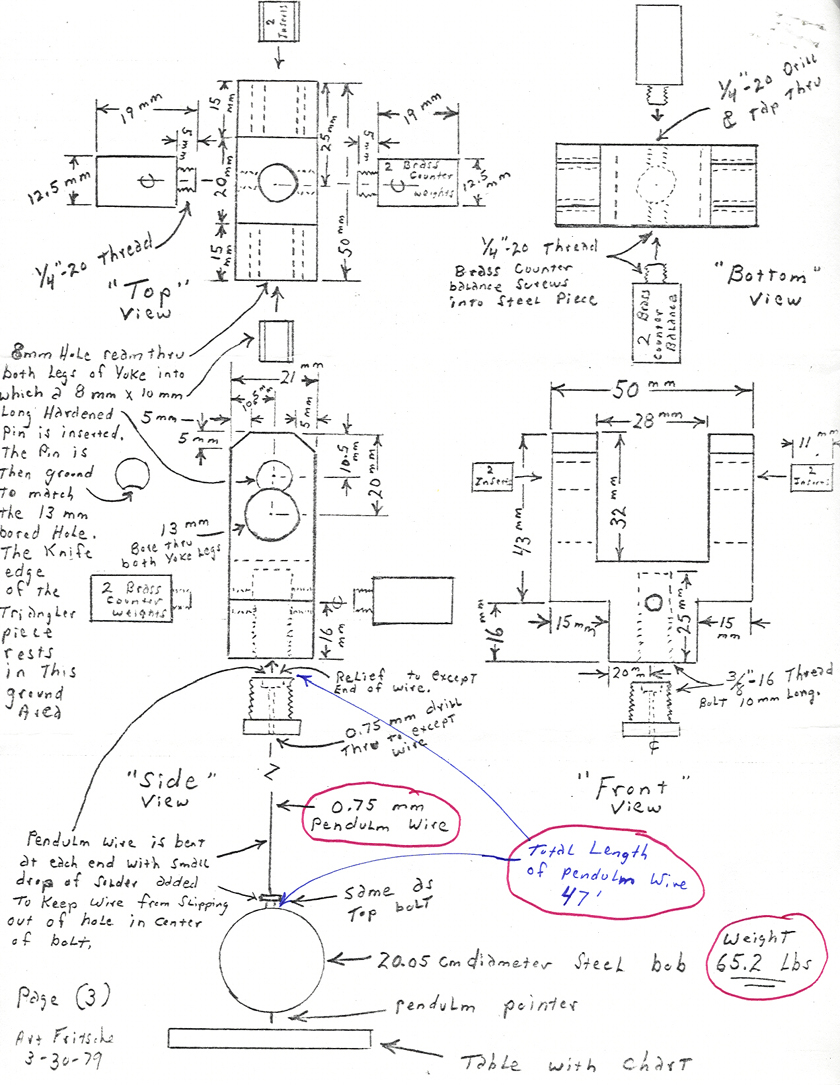 2
Inserts
1/4"-20 Drill
& Tap Thru
19 mm
15
mm
5
mm
25 mm
20 mm
50 mm
15
mm
12.5 mm
19 mm
5
mm
2 Brass
Counter
weights
12.5
mm
1/4"-20 Thread
"Top"
View
1/4"-20 Thread
Brass Counter
balance Screws
into Steel Piece
"Bottom"
View
2 Brass
Counter
Balance
8mm Hole ream thru
both Legs of Yoke into
which a 8 mm x 10 mm
Long Hardened
Pin is inserted.
The Pin is
Then ground
to match
the 13 mm
bored Hole.
The Knife
edge
of the
Triangler
piece
rests
in This
ground
Area
21 mm
10.5 mm
5 mm
5 mm
5 mm
10.5
mm
20 mm
13 mm
Bore thru
both Yoke Legs
2 Brass
Counter
weights
16
mm
50 mm
28 mm
11 mm
2
Inserts
2
Inserts
43 mm
32 mm
16 mm
15 mm
25 mm
15
mm
20 m
3/8"-16 Thread
Bolt 10 mm Long.
Relief to except
End of wire.
0.75 mm drill
Thru to except
wire
"Side"
View
"Front"
View
0.75 mm
Pendulm Wire
Total Length
of pendulm wire
47'
Pendulm wire is bent
at each end with small
drop of Solder added
To Keep Wire from Slipping
out of hole in center
of bolt.
same as
Top bolt
20.05 cm diameter Steel bob
Weight
65.2 Lbs
Pendulm pointer
Page (3)
Art Fritsche
3-30-79
Table with chart